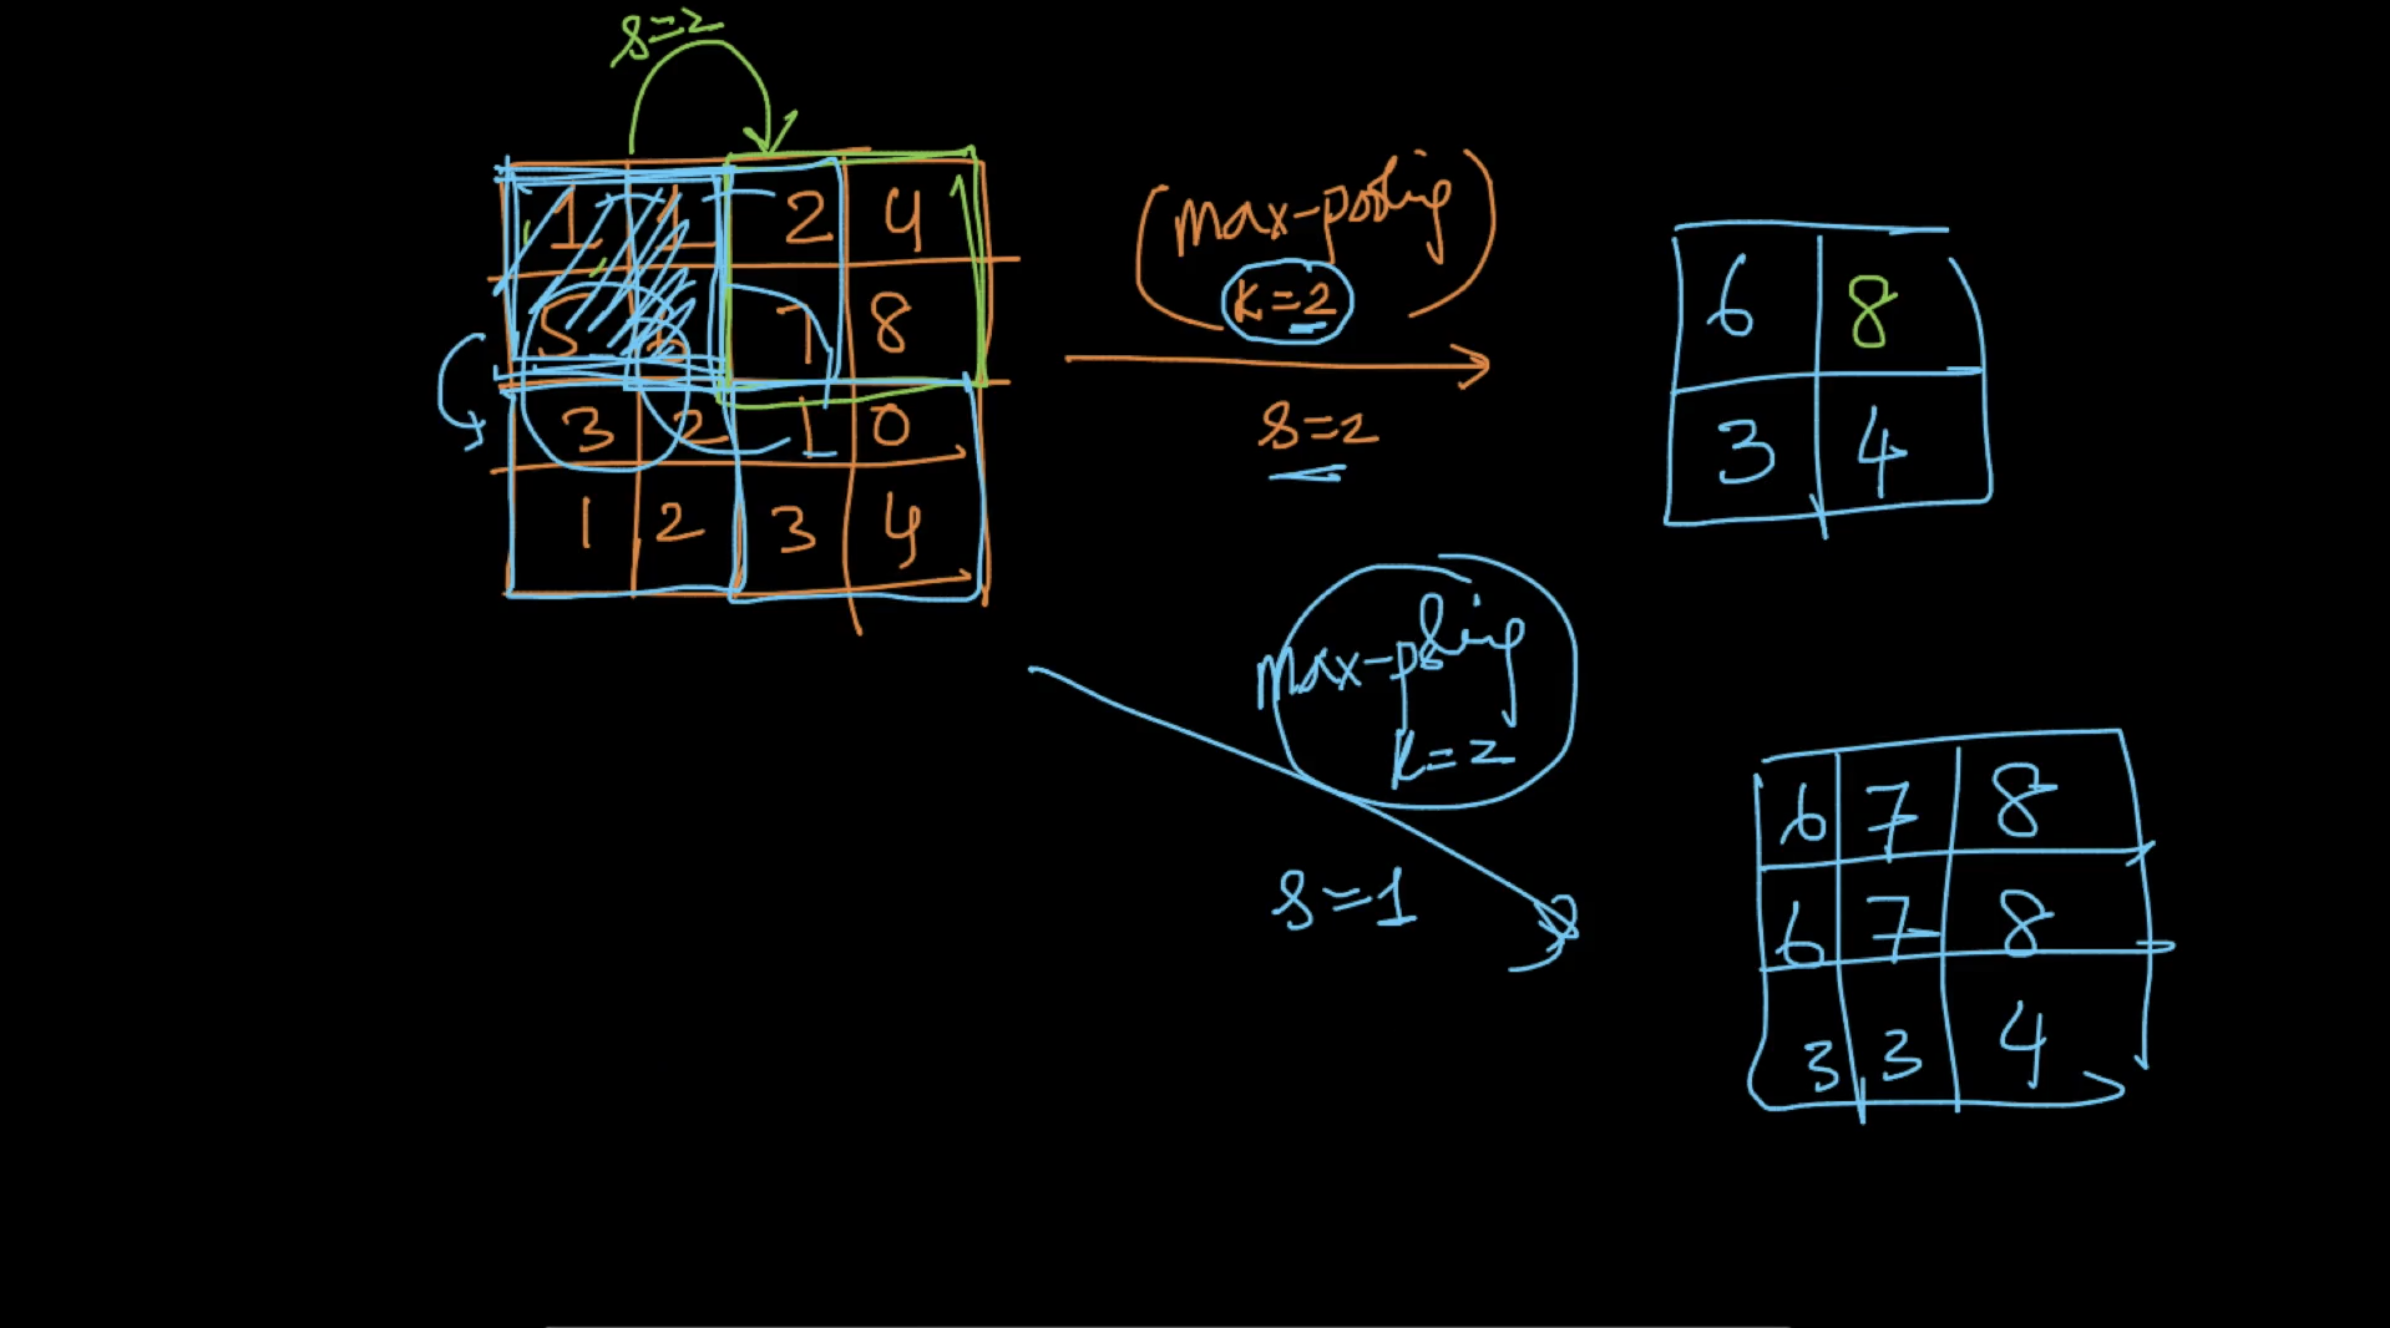 s=2
1 1 2 4
5 6 7 8
3 2 1 0
1 2 3 4
(max-pooling)
k=2
s=2
6 8
3 4
max-pooling
k=2
s=1
6 7 8
6 7 8
3 3 4